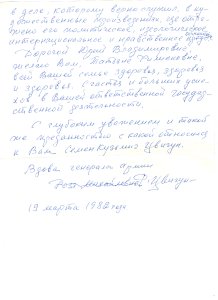 в дело, которому верно служил, в ху-
дожественных произведениях, где отра-
жено его политическое, идеологическое
интернациональное и нравственное
Дорогой Юрий Владимирович,
желаю Вам, Татьяне Филипповне,
всей Вашей семье здоровья, здоровья
и здоровья. Счастья и больших успе-
хов в Вашей ответственной государ-
ственной деятельности.
С глубоким уважением и такой
же преданностью с какой относился
к Вам Семен Кузьмич Цвигун.
Вдова генерала армии
Роза Цвигун
19 марта 1982 года